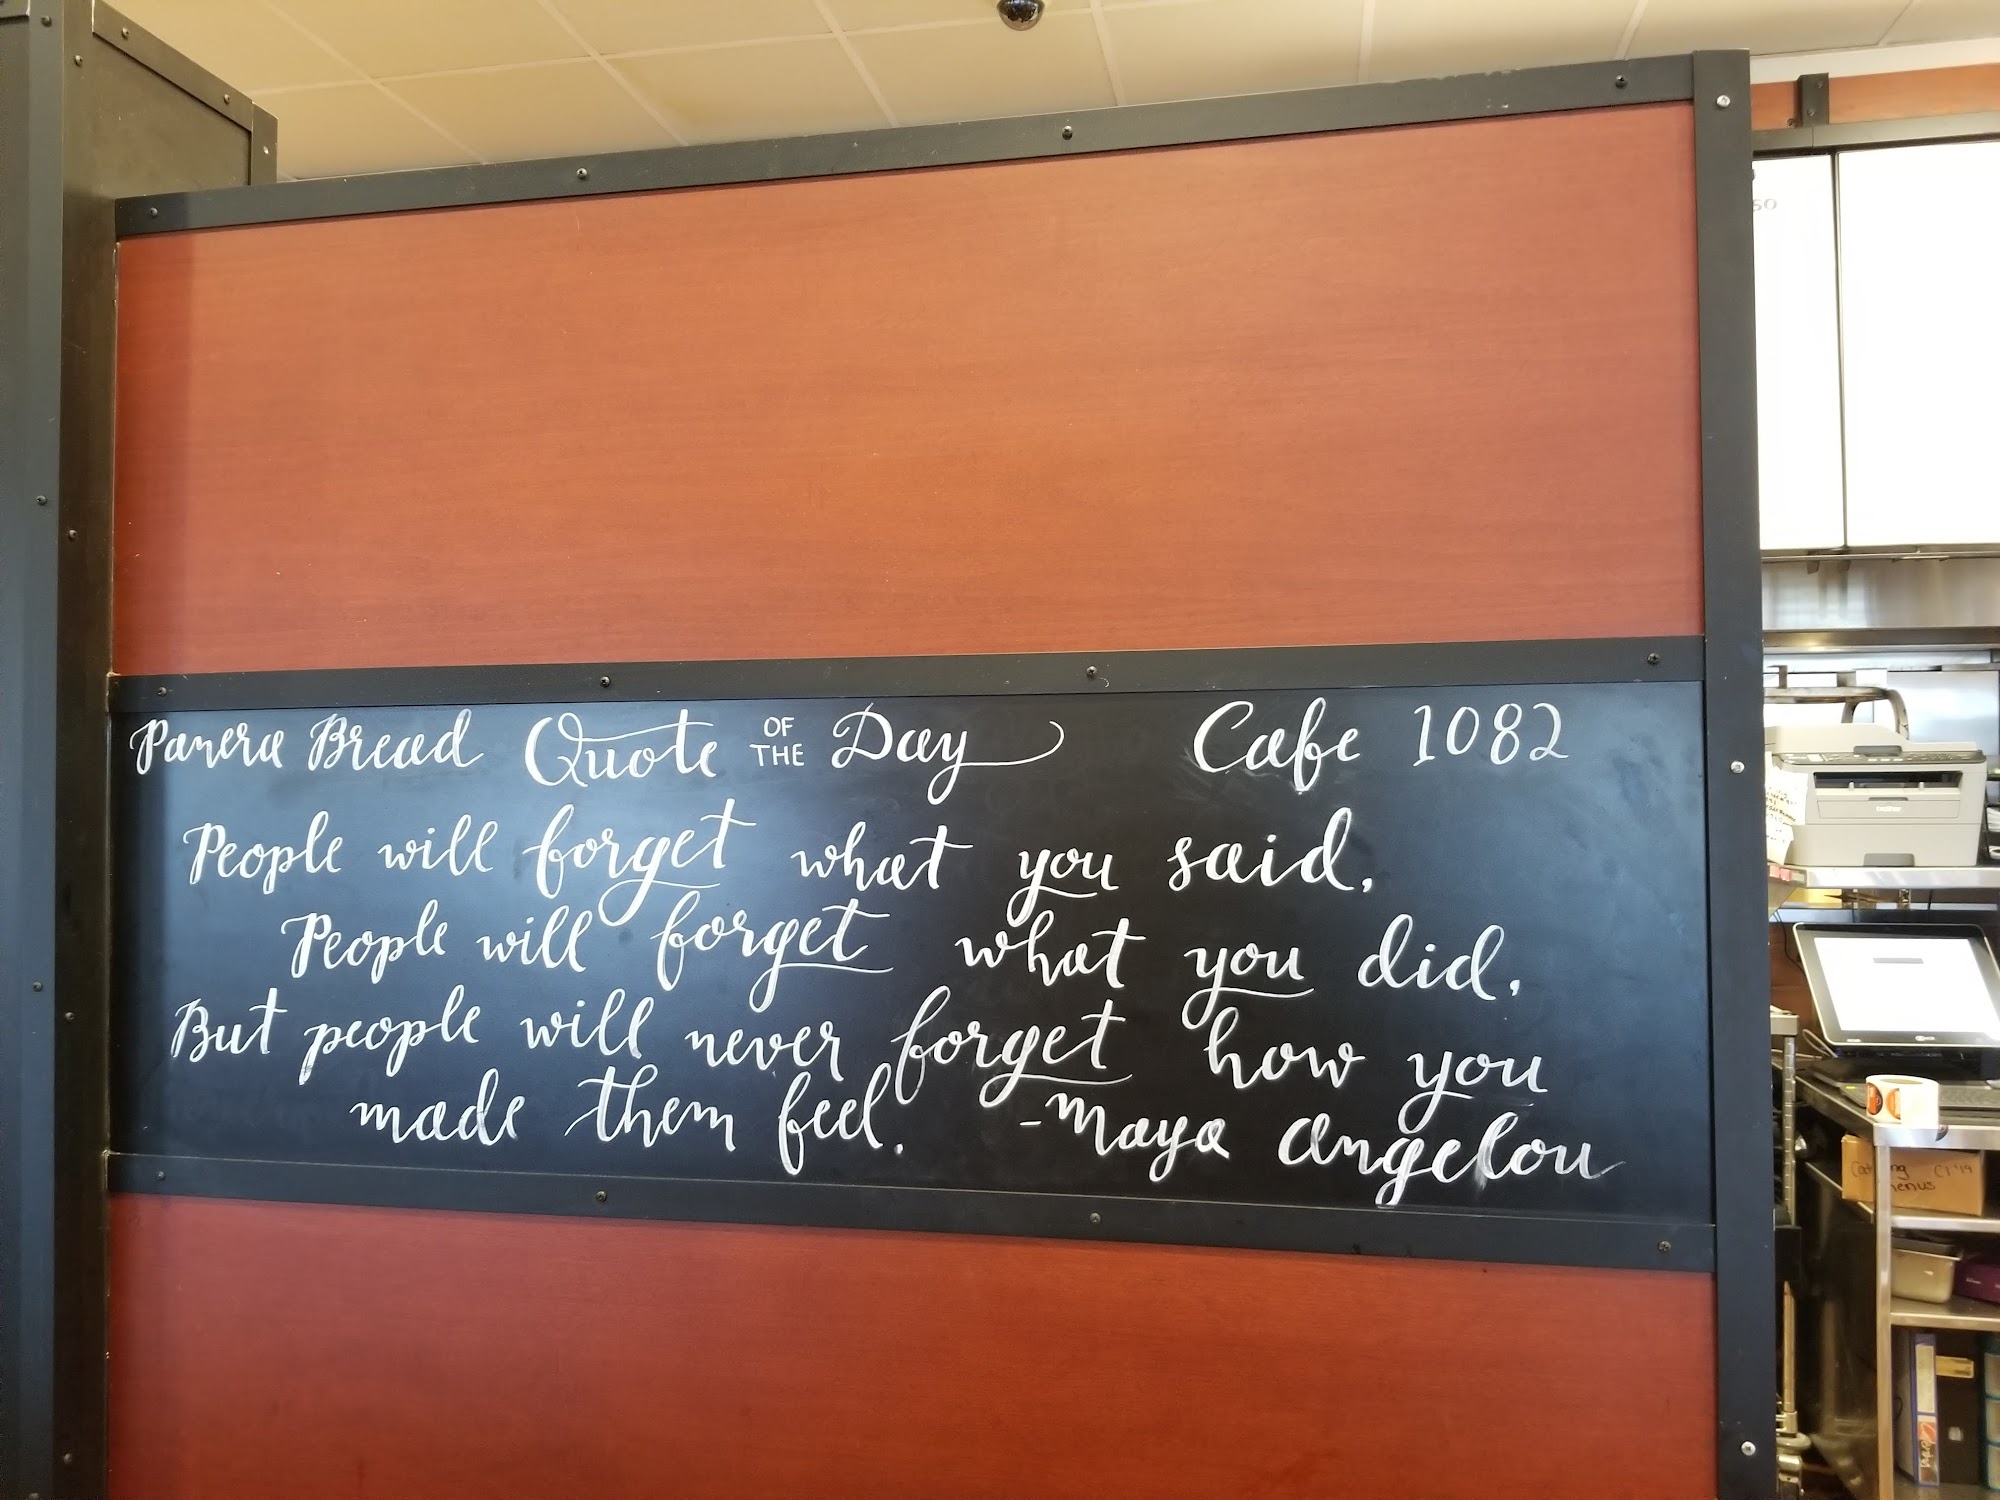 Panera Bread Quote OF THE Day Cafe 1082
People will forget what you said,
People will forget what you did,
But people will never forget how you
made them feel. -Maya Angelou
brother
menus